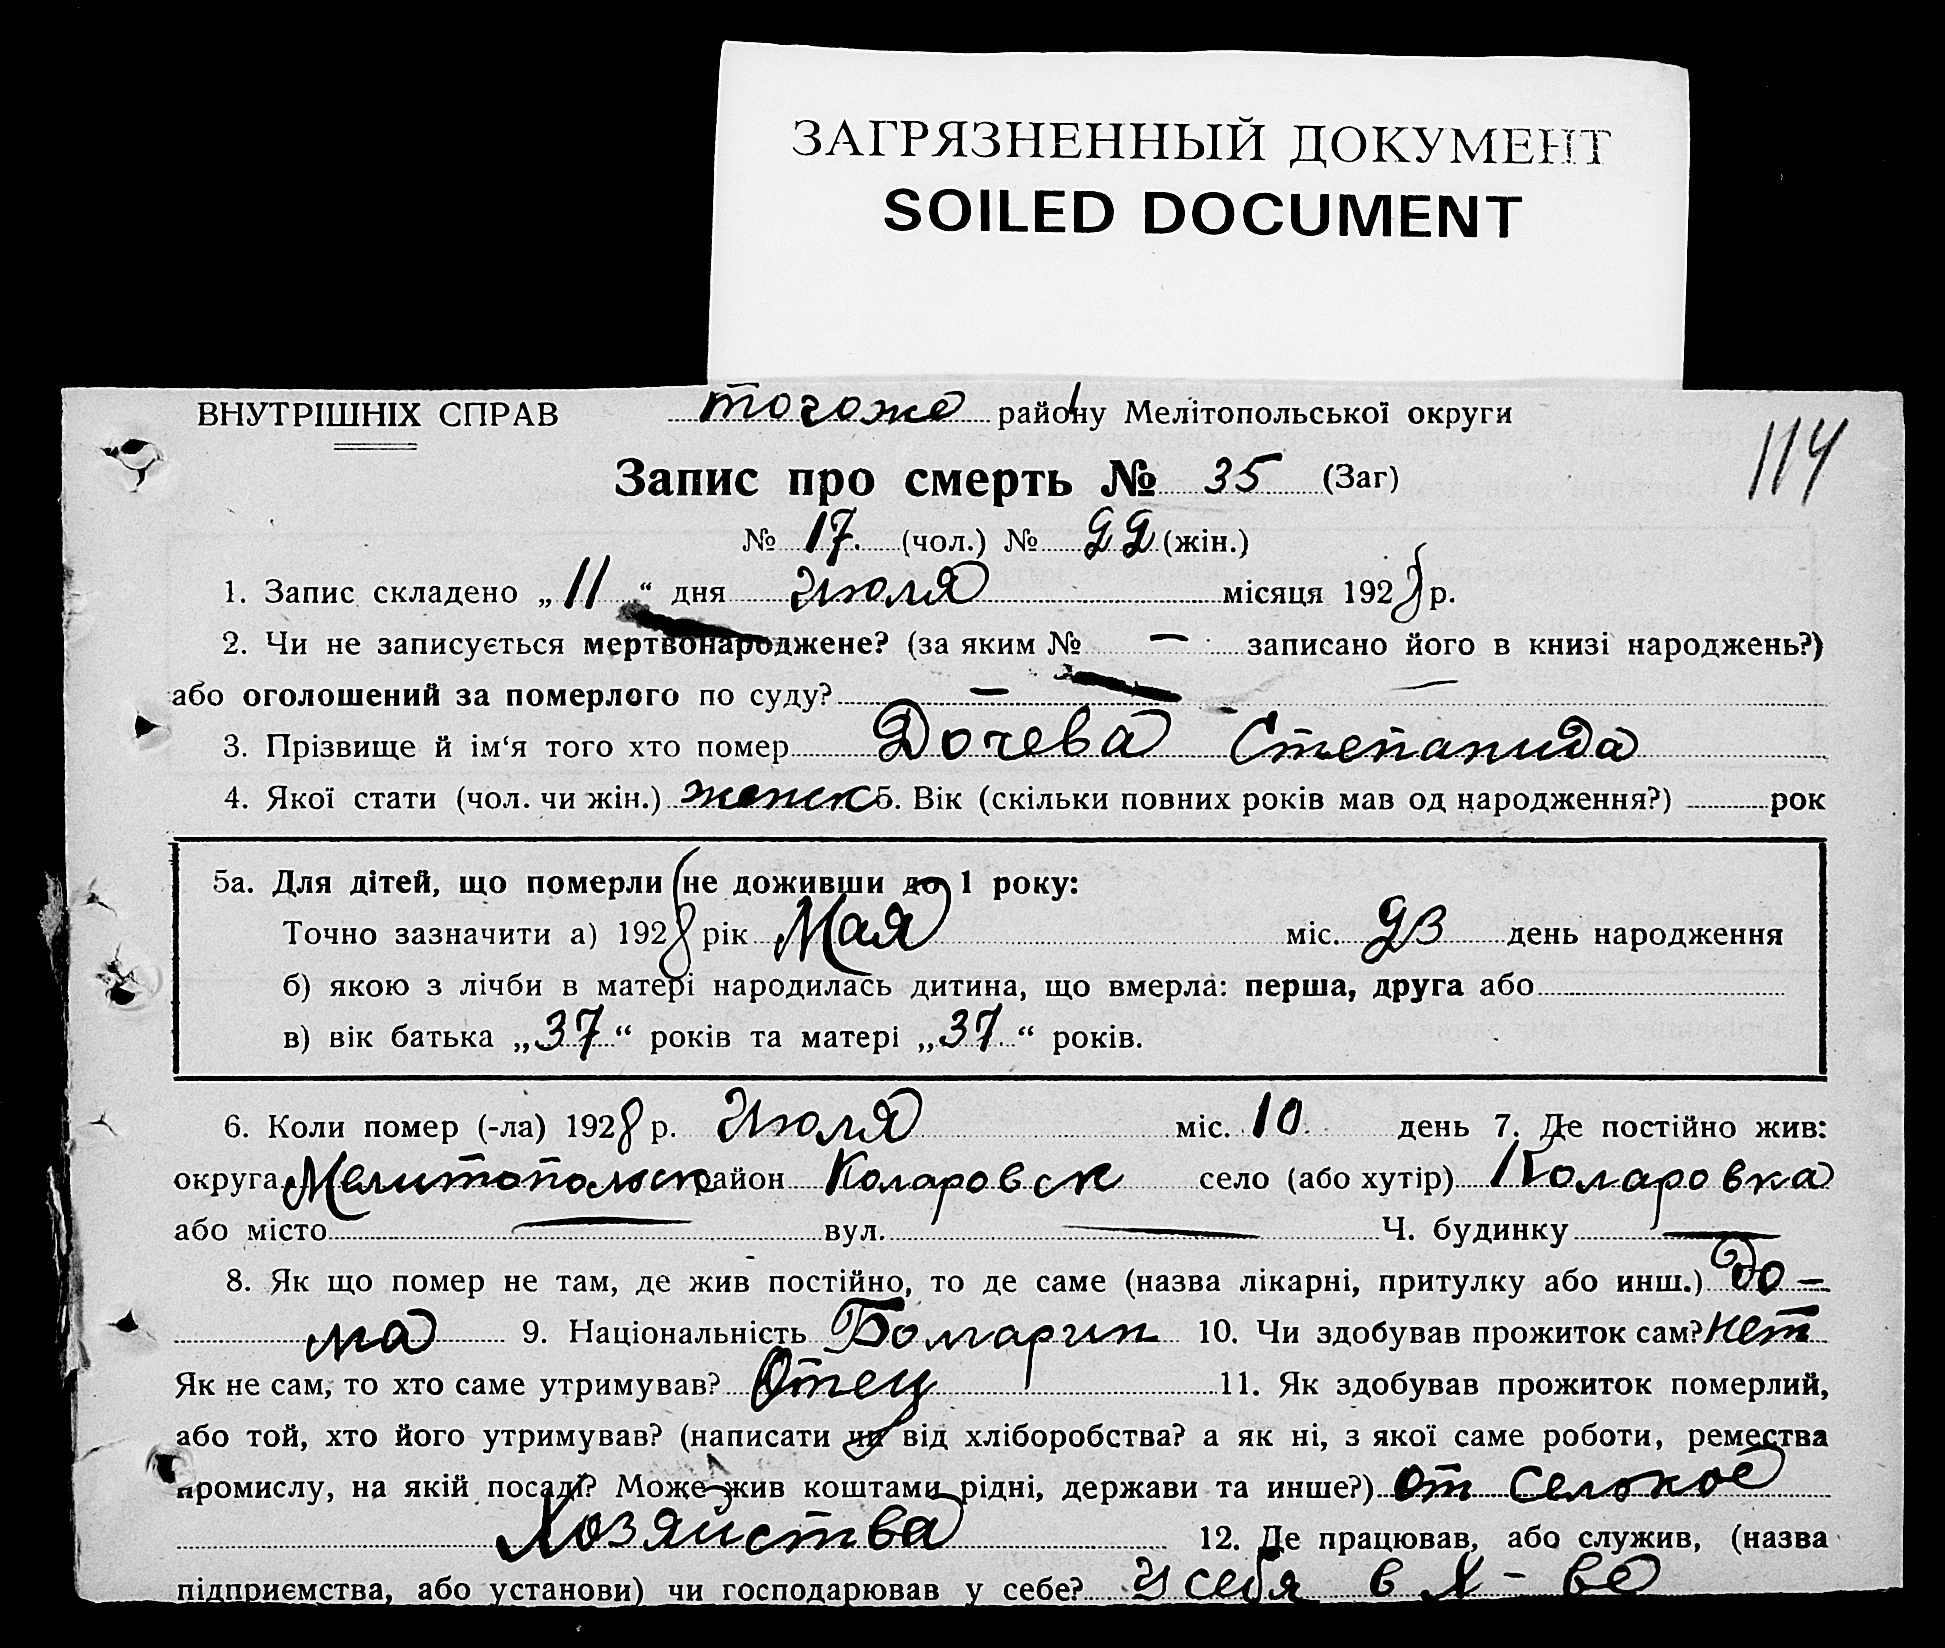 ЗАГРЯЗНЕННЫЙ ДОКУМЕНТ
SOILED DOCUMENT
ВНУТРІШНІХ СПРАВ тогоже району Мелітопольської округи
114
Запис про смерть № 35 (Заг)
№ 17 (чол.) № 22 (жін.)
1. Запис складено „ 11 “ дня Июля місяця 1928 р.
2. Чи не записується мертвонароджене? (за яким № — записано його в книзі народжень?)
або оголошений за померлого по суду? —
3. Прізвище й ім‘я того хто помер Дочева Степанида
4. Якої стати (чол. чи жін.) женск 5. Вік (скільки повних років мав од народження?) рок
5а. Для дітей, що померли не доживши до 1 року:
Точно зазначити а) 1928 рік Мая міс. 23 день народження
б) якою з лічби в матері народилась дитина, що вмерла: перша, друга або
в) вік батька „37“ років та матері „37“ років.
6. Коли помер (-ла) 1928 р. Июля міс. 10 день 7. Де постійно жив:
округа Мелитопольск район Коларовск село (або хутір) Коларовка
або місто — вул. — Ч. будинку —
8. Як що помер не там, де жив постійно, то де саме (назва лікарні, притулку або инш.) до-
ма 9. Національність Болгарин 10. Чи здобував прожиток сам? нет
Як не сам, то хто саме утримував? Отец 11. Як здобував прожиток померлий,
або той, хто його утримував? (написати чи від хліборобства? а як ні, з якої саме роботи, ремества
промислу, на якій посаді? Може жив коштами рідні, держави та инше?) от Сельског
Хозяйства 12. Де працював, або служив, (назва
підприємства, або установи) чи господарював у себе? У себя в Х-ве